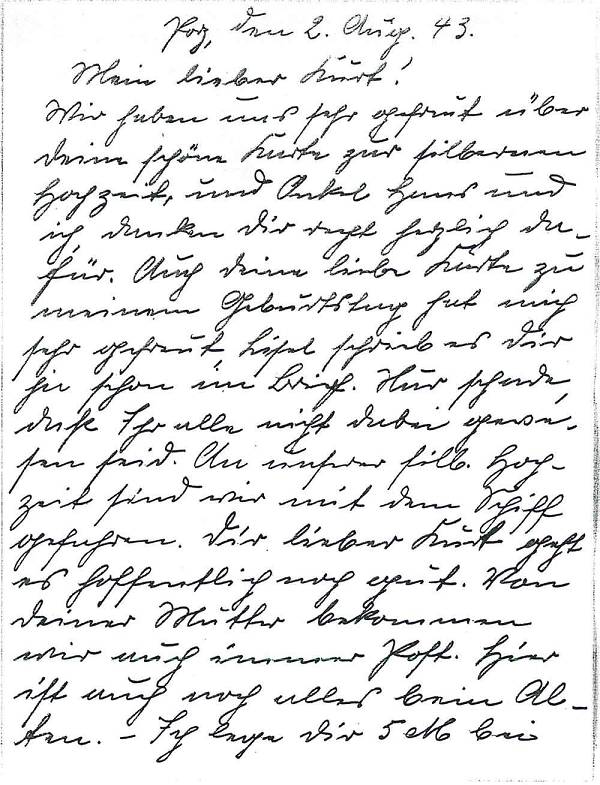 Porz, den 2. Aug. 43.
Mein lieber Kurt!
Wir haben uns sehr gefreut über
deine schöne Karte zur silbernen
Hochzeit, und Onkel Hans und
ich danken Dir recht herzlich da-
für. Auch deine liebe Karte zu
meinem Geburtstag hat mich
sehr gefreut Lisel schrieb es Dir
ja schon im Brief. Nur schade,
daß Ihr alle nicht dabei gewe-
sen seid. An unserer silb. Hoch-
zeit sind wir mit dem Schiff
gefahren. Dir lieber Kurt geht
es hoffentlich noch gut. Von
deiner Mutter bekommen
wir auch immer Post. Hier
ist auch noch alles beim Al-
ten. – Ich lege Dir 5 M bei